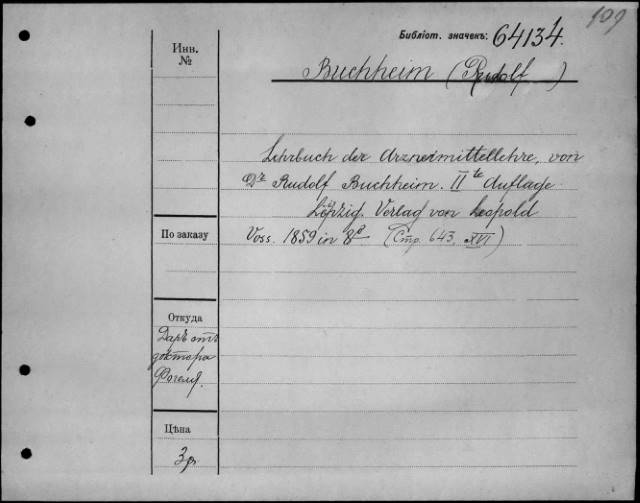 109
Библіот. значекъ: 64134.
Инв.
№
Buchheim (Rudolf)
Lehrbuch der Arzneimittellehre, von
Dr Rudolf Buchheim. II te Auflage.
Leipzig. Verlag von Leopold
Voss. 1859 in 8° (Стр. 643, XVI)
По заказу
Откуда
Даръ отъ
доктора
Фогеля.
Цѣна
3 р.